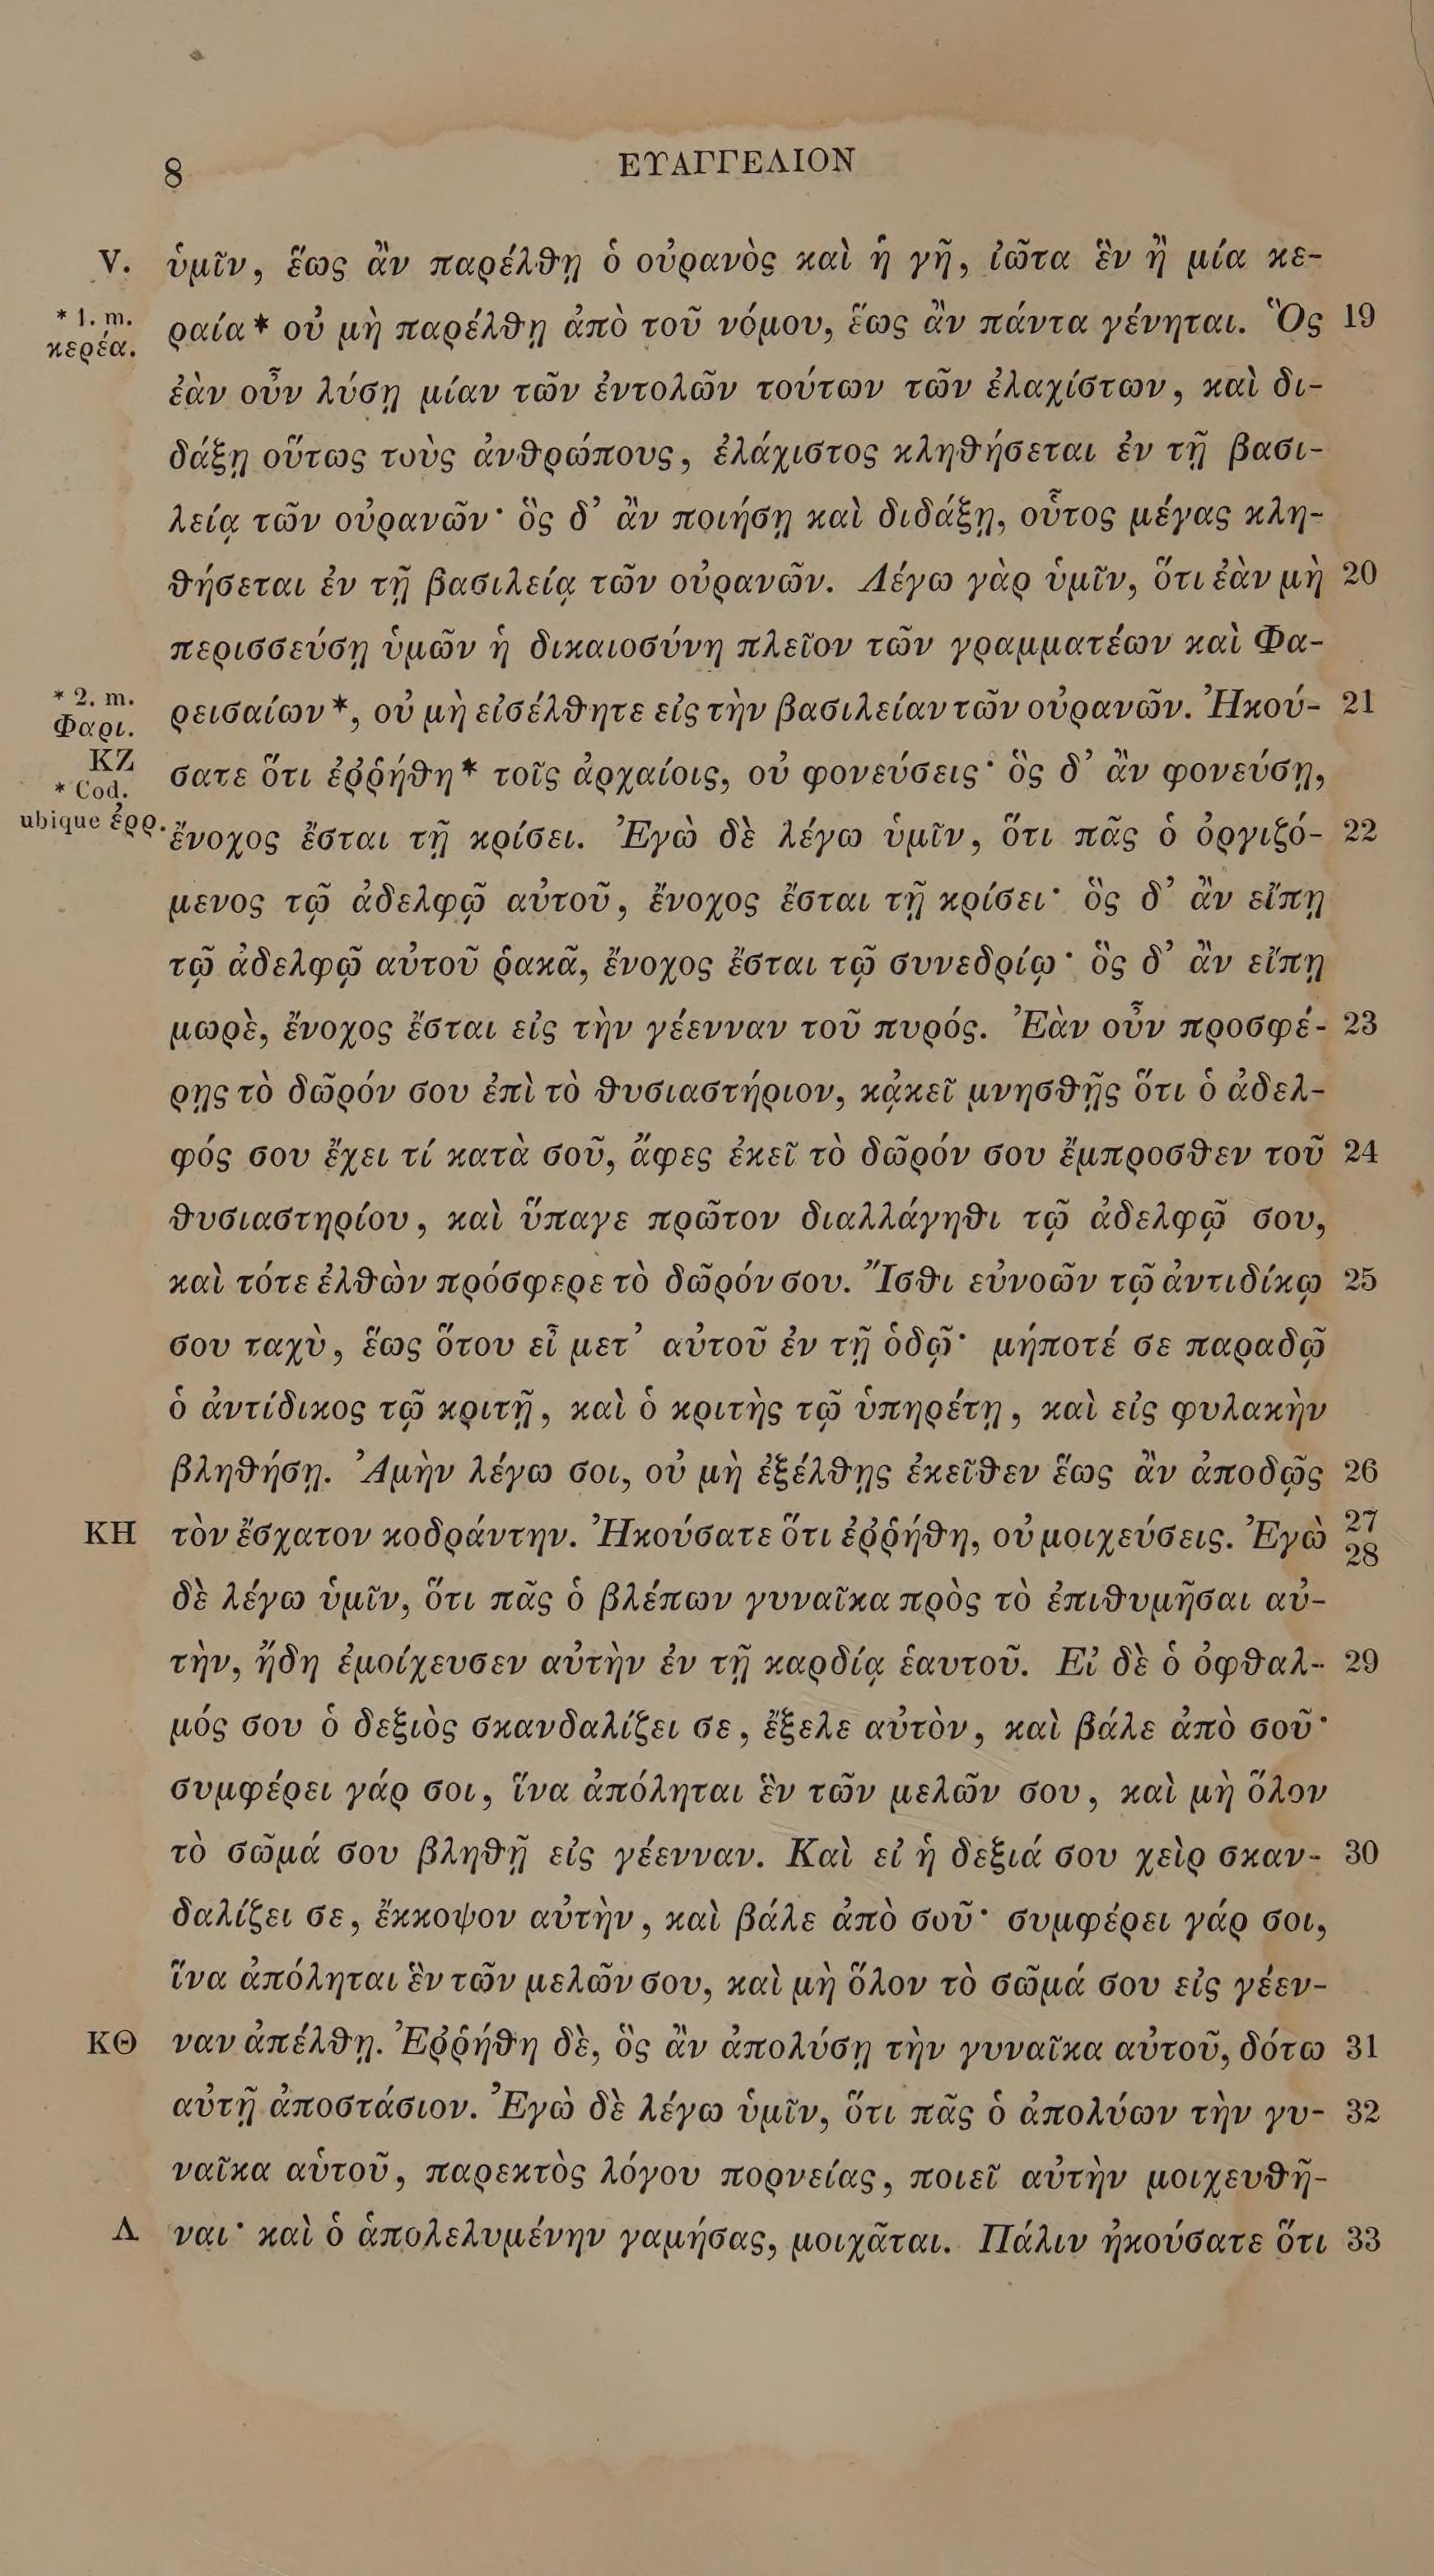 8 ΕΥΑΓΓΕΛΙΟΝ
V. ὑμῖν, ἕως ἂν παρέλθῃ ὁ οὐρανὸς καὶ ἡ γῆ, ἰῶτα ἓν ἢ μία κε-
* 1. m. κερέα. ραία* οὐ μὴ παρέλθῃ ἀπὸ τοῦ νόμου, ἕως ἂν πάντα γένηται. Ὃς 19
ἐὰν οὖν λύσῃ μίαν τῶν ἐντολῶν τούτων τῶν ἐλαχίστων, καὶ δι-
δάξῃ οὕτως τοὺς ἀνθρώπους, ἐλάχιστος κληθήσεται ἐν τῇ βασι-
λείᾳ τῶν οὐρανῶν· ὃς δ’ ἂν ποιήσῃ καὶ διδάξῃ, οὗτος μέγας κλη-
θήσεται ἐν τῇ βασιλείᾳ τῶν οὐρανῶν. Λέγω γὰρ ὑμῖν, ὅτι ἐὰν μὴ 20
περισσεύσῃ ὑμῶν ἡ δικαιοσύνη πλεῖον τῶν γραμματέων καὶ Φα-
* 2. m. Φαρι. ρεισαίων*, οὐ μὴ εἰσέλθητε εἰς τὴν βασιλείαν τῶν οὐρανῶν. Ἠκού- 21
ΚΖ * Cod. σατε ὅτι ἐῤῥήθη* τοῖς ἀρχαίοις, οὐ φονεύσεις· ὃς δ’ ἂν φονεύσῃ,
ubique ἐρρ. ἔνοχος ἔσται τῇ κρίσει. Ἐγὼ δὲ λέγω ὑμῖν, ὅτι πᾶς ὁ ὀργιζό- 22
μενος τῷ ἀδελφῷ αὐτοῦ, ἔνοχος ἔσται τῇ κρίσει· ὃς δ’ ἂν εἴπῃ
τῷ ἀδελφῷ αὐτοῦ ῥακᾶ, ἔνοχος ἔσται τῷ συνεδρίῳ· ὃς δ’ ἂν εἴπῃ
μωρὲ, ἔνοχος ἔσται εἰς τὴν γέενναν τοῦ πυρός. Ἐὰν οὖν προσφέ- 23
ρῃς τὸ δῶρόν σου ἐπὶ τὸ θυσιαστήριον, κᾀκεῖ μνησθῇς ὅτι ὁ ἀδελ-
φός σου ἔχει τί κατὰ σοῦ, ἄφες ἐκεῖ τὸ δῶρόν σου ἔμπροσθεν τοῦ 24
θυσιαστηρίου, καὶ ὕπαγε πρῶτον διαλλάγηθι τῷ ἀδελφῷ σου,
καὶ τότε ἐλθὼν πρόσφερε τὸ δῶρόν σου. Ἴσθι εὐνοῶν τῷ ἀντιδίκῳ 25
σου ταχὺ, ἕως ὅτου εἶ μετ’ αὐτοῦ ἐν τῇ ὁδῷ· μήποτέ σε παραδῷ
ὁ ἀντίδικος τῷ κριτῇ, καὶ ὁ κριτὴς τῷ ὑπηρέτῃ, καὶ εἰς φυλακὴν
βληθήσῃ. Ἀμὴν λέγω σοι, οὐ μὴ ἐξέλθῃς ἐκεῖθεν ἕως ἂν ἀποδῷς 26
ΚΗ τὸν ἔσχατον κοδράντην. Ἠκούσατε ὅτι ἐῤῥήθη, οὐ μοιχεύσεις. Ἐγὼ 27 28
δὲ λέγω ὑμῖν, ὅτι πᾶς ὁ βλέπων γυναῖκα πρὸς τὸ ἐπιθυμῆσαι αὐ-
τὴν, ἤδη ἐμοίχευσεν αὐτὴν ἐν τῇ καρδίᾳ ἑαυτοῦ. Εἰ δὲ ὁ ὀφθαλ- 29
μός σου ὁ δεξιὸς σκανδαλίζει σε, ἔξελε αὐτὸν, καὶ βάλε ἀπὸ σοῦ·
συμφέρει γάρ σοι, ἵνα ἀπόληται ἓν τῶν μελῶν σου, καὶ μὴ ὅλον
τὸ σῶμά σου βληθῇ εἰς γέενναν. Καὶ εἰ ἡ δεξιά σου χεὶρ σκαν- 30
δαλίζει σε, ἔκκοψον αὐτὴν, καὶ βάλε ἀπὸ σοῦ· συμφέρει γάρ σοι,
ἵνα ἀπόληται ἓν τῶν μελῶν σου, καὶ μὴ ὅλον τὸ σῶμά σου εἰς γέεν-
ΚΘ ναν ἀπέλθῃ. Ἐῤῥήθη δὲ, ὃς ἂν ἀπολύσῃ τὴν γυναῖκα αὐτοῦ, δότω 31
αὐτῇ ἀποστάσιον. Ἐγὼ δὲ λέγω ὑμῖν, ὅτι πᾶς ὁ ἀπολύων τὴν γυ- 32
ναῖκα αὑτοῦ, παρεκτὸς λόγου πορνείας, ποιεῖ αὐτὴν μοιχευθῆ-
Λ ναι· καὶ ὁ ἀπολελυμένην γαμήσας, μοιχᾶται. Πάλιν ἠκούσατε ὅτι 33